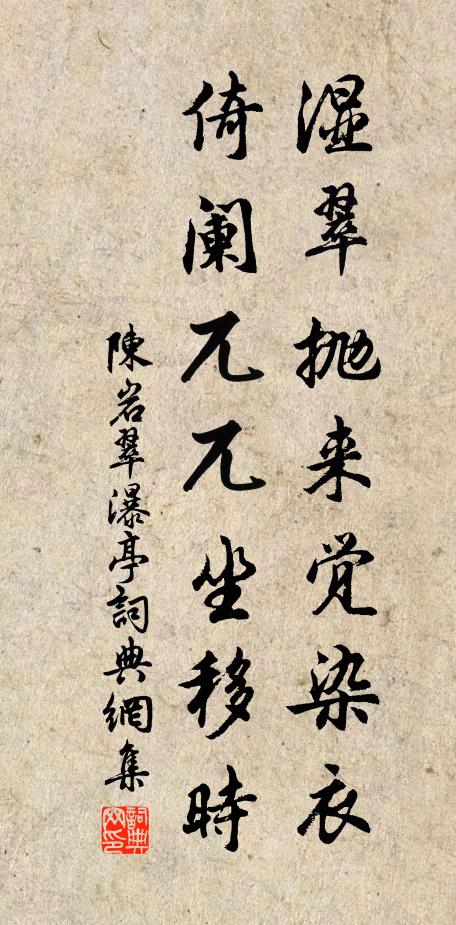 湿翠抛来觉染衣
倚阑兀兀坐移时
陳岩翠瀑亭詞典網集
詞典网印